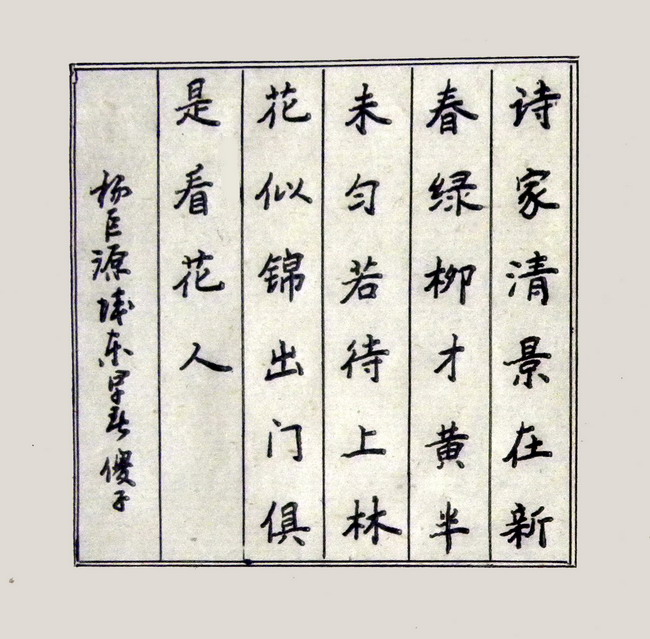 诗家清景在新
春绿柳才黄半
未匀若待上林
花似锦出门俱
是看花人
杨巨源城东早春傻子